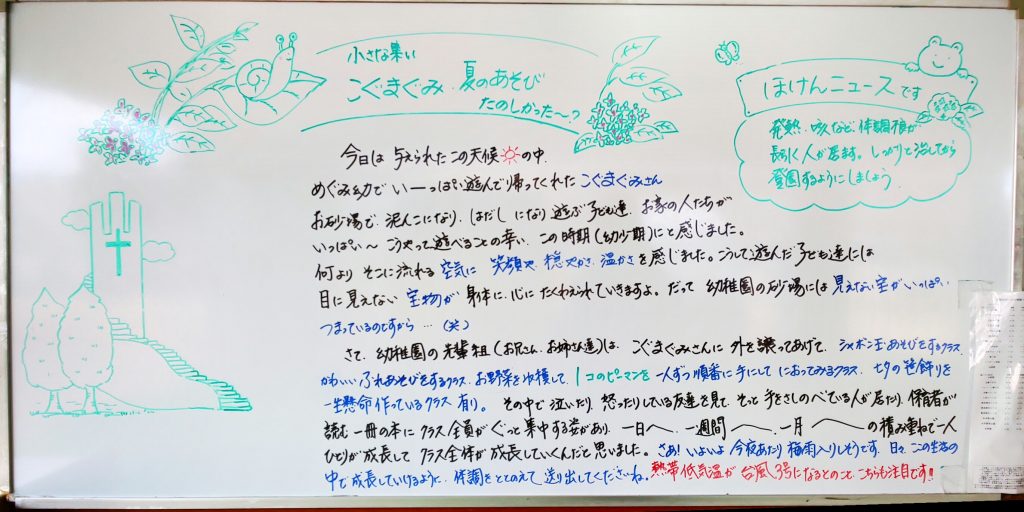 小さな集い
こぐまぐみ・夏のあそび
たのしかった〜?
ほけんニュースです
発熱・咳など、体調不良が
長引く人が居ます。しっかりと治してから
登園するようにしましょう
今日は 与えられたこの天候の中、
めぐみ幼で いーっぱい遊んで帰ってくれた こぐまぐみさん
お砂場で、泥んこになり、はだしになり遊ぶ子ども達、お家の人たちが
いっぱい〜 こうやって遊べることの幸い、この時期(幼少期)にと感じました。
何より そこに流れる 空気に 笑顔や、穏やかさ、温かさを感じました。こうして遊んだ子ども達には
目に見えない 宝物が 身体に、心に たくわえられていきますよ。だって 幼稚園の砂場には 見えない宝がいっぱい
つまっているのですから…(笑)
さて、幼稚園の先輩組(お兄さん、お姉さん達)は、こぐまぐみさんに 外を譲ってあげて、シャボン玉あそびをするクラス、
かわいいふれあそびをするクラス、お野菜を収穫して、1コのピーマンを 一人ずつ順番に手にして においてみるクラス、七夕の笹飾りを
一生懸命作っているクラス 有り。その中で 泣いたり、怒ったりしている友達を見て、そっと手をさしのべている人が居たり、保育者が
読む 一冊の本に クラス全員が ぐっと集中する姿があり、一日へ、一週間へ、一月への積み重ねで一人
ひとりが成長して クラス全体が成長していくんだと思いました。さあ!いよいよ 今夜あたり 梅雨入りしそうです、日々、この生活の
中で成長していけるように、体調をととのえて、送り出してくださいね。熱帯低気温が 台風3号になるとのこと、こちらも注目です!!